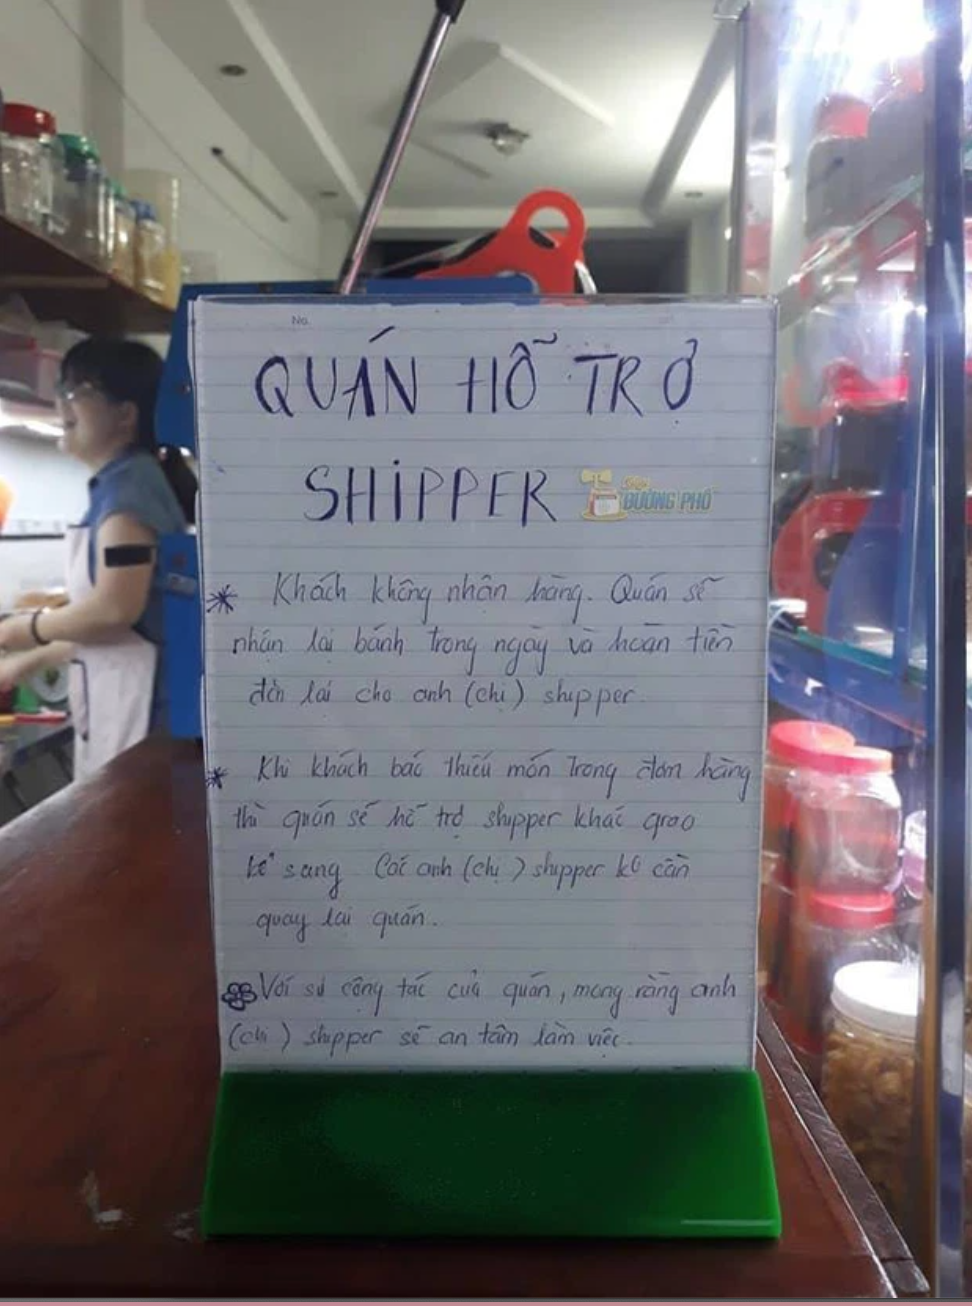 No.
QUÁN HỖ TRỢ
SHIPPER
ĐƯỜNG PHỐ
* Khách không nhận hàng. Quán sẽ
nhận lại bánh trong ngày và hoàn tiền
đơn lại cho anh (chị) shipper.
* Khi khách báo thiếu món trong đơn hàng
thì quán sẽ hỗ trợ shipper khác giao
kế sang. Các anh (chị) shipper ko cần
quay lại quán.
Với sự cộng tác của quán, mong rằng anh
(chị) shipper sẽ an tâm làm việc.